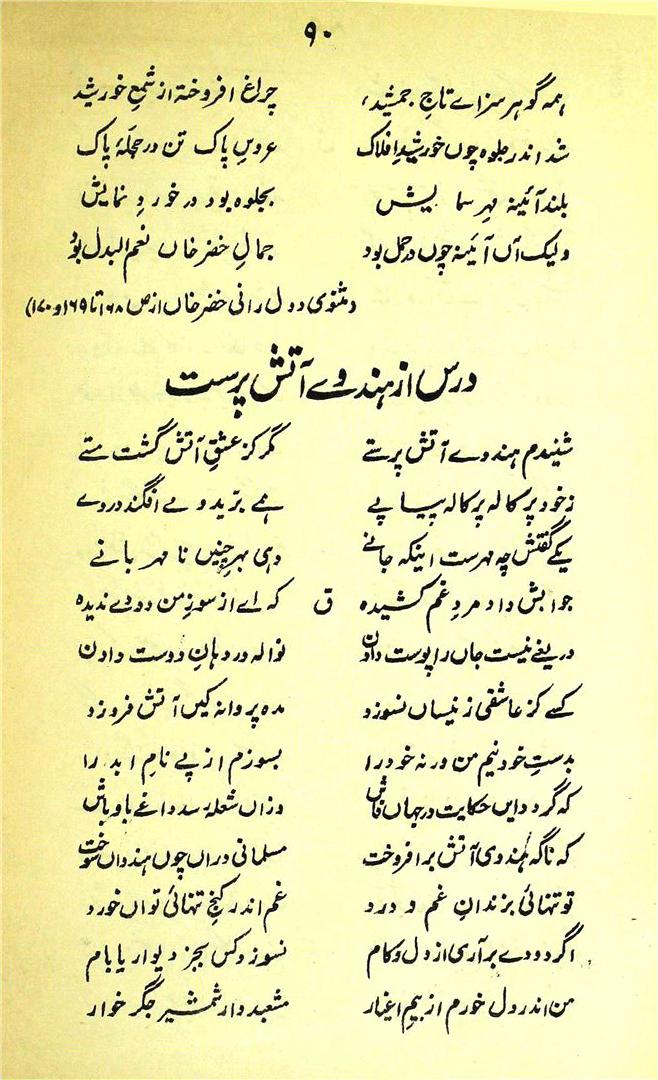 ۹۰
ہمہ گوہر سزاے تاجِ جمشید، چراغ افروختہ از شمعِ خورشید
شد اندر جلوہ چوں خورشیدِ افلاک عروسِ پاک تن در حجلۂ پاک
بلند آئینۂ مہرِ سما یش بجلوہ بود در خوردِ نمایش
ولیک آں آئینہ چوں در حمل بود جمالِ خضر خاں نعم البدل بود
(مثنوی دول رانی خضر خاں از ص ۱۶۸ تا ۱۶۹ و ۱۷۰)
درس از ہندوے آتش پرست
شنیدم ہندوے آتش پرستے مگر کز عشقِ آتش گشت مستے
زخود پرکالہ پرکالہ پیاپے ہمے بُرید و مے افگند در وے
یکے گفتش چہ مہرست اینکہ جانے دہی بہرِ چنیں نا مہربانے
جوابش داد مردِ غم کشیدہ ق کہ اے از سوزِ من دودے ندیدہ
دریغے نیست جاں را پوست دادن نوالہ در دہانِ دوست دادن
کسے کز عاشقی زینساں نسوزد مدہ پروانہ کیں آتش فروزد
بدستِ خود نیم من ورنہ خود را بسوزم از پے نامِ ابد را
کہ گردد ایں حکایت در جہاں فاش وزاں شعلہ رسد داغے باوباش
کہ ناگہ ہندوی آتش برافروخت مسلمانی دراں چوں ہندواں سوخت
تو تنہائی بزندانِ غم و درد غم اندر کنجِ تنہائی تواں خورد
اگر دودے برآری از دل و کام نسوزد کس بجز دیوار یا بام
من اندر دل خورم از بیمِ اغیار مشعبد وار شمشیرِ جگر خوار